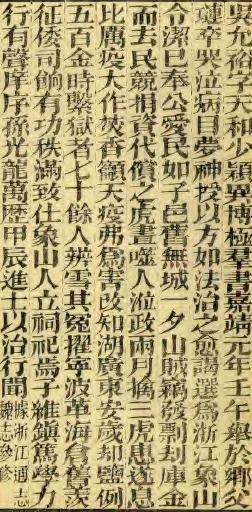 吳允裕字天和少穎異博極羣書嘉靖元年壬午舉於鄉父
璉卒哭泣病目夢神授以方如法治之愈謁選爲浙江象山
令潔巳奉公愛民如子邑舊無城一夕山賊竊發剽刼庫金
而去民競捐資代償之虎晝噬人涖政兩月擒三虎患遂息
比厲疫大作焚香籲天疫弗爲害改知湖廣東安歲却鹽例
五百金時繫獄者七十餘人辨雪其冤擢寧波革海倉舊羨
征倭司餉有功秩滿致仕象山人立祠祀焉子維鎮篤學力
行有聲庠序孫光龍萬歷甲辰進士以治行聞據浙江通志
魏志參修